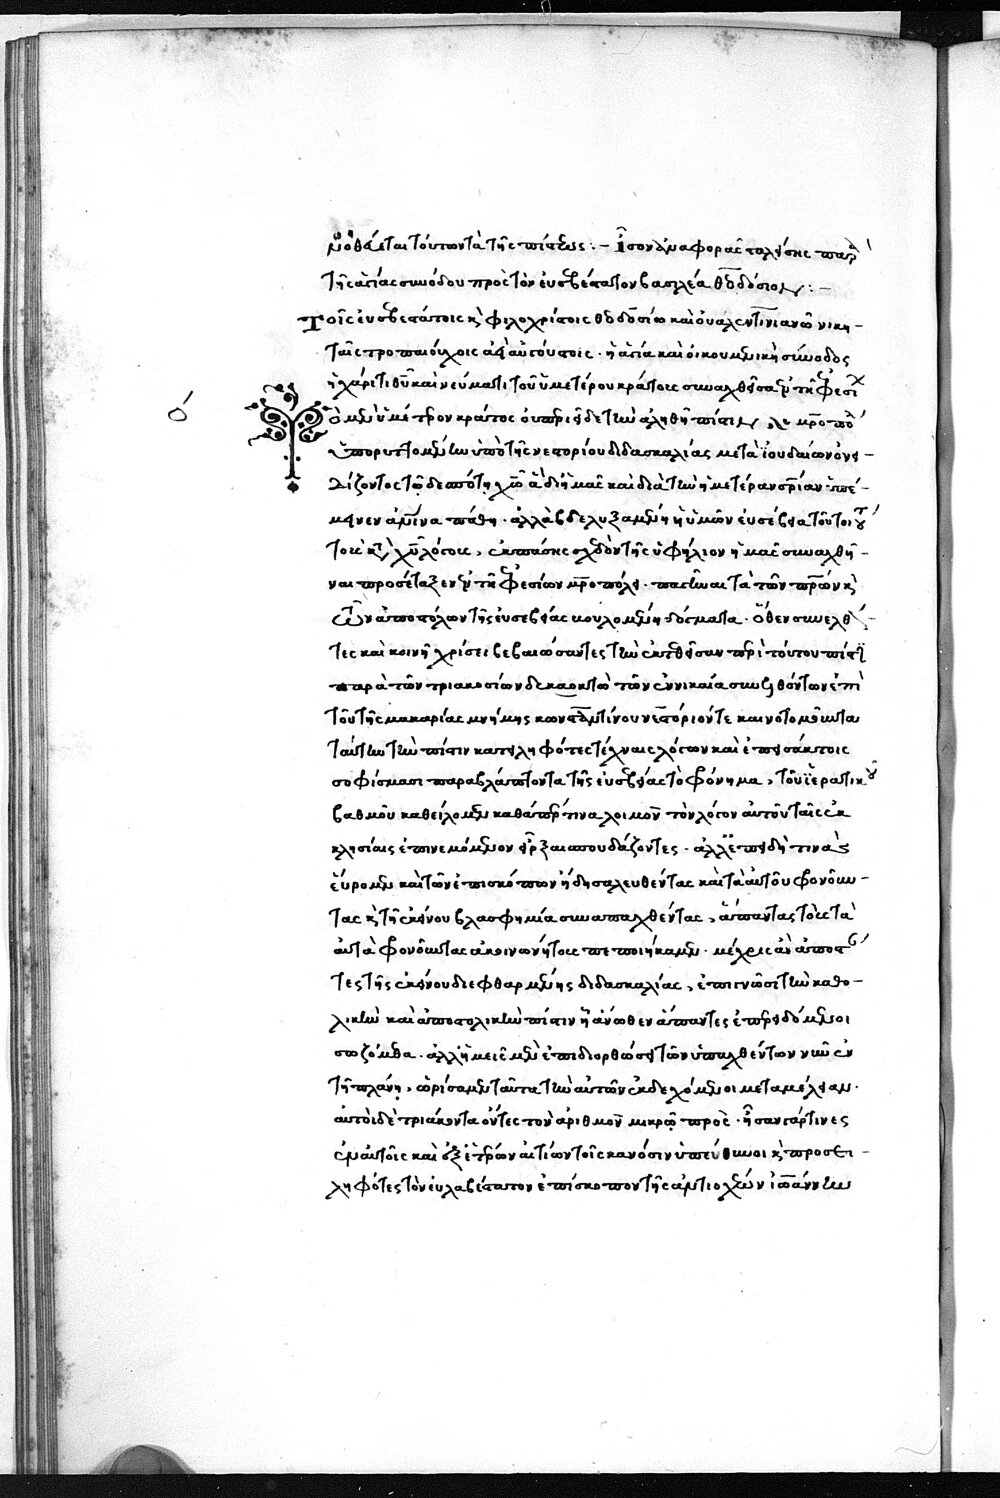 μοθέται τούτων τὰ τῆς πίστεως :- Ἴσον ἀναφορᾶς τολύσης παρ
τῆς ἁγίας συνόδου πρὸς τὸν εὐσεβέστατον βασιλέα θεοδόσιον :-
Τοῖς εὐσεβεστάτοις κ φιλοχρίστοις θεοδοσίω καὶ οὐαλεντινιανῶ νικη-
ταῖς τροπαιούχοις ἀεὶ αὐγούστοις · ἡ ἁγία καὶ οἰκουμενικὴ σύνοδος
ἡ χάριτι θυ καὶ νεύματι τοῦ ὑμετέρου κράτους συναχθεῖσα ἐν τῆ ἐφεσί
ὁ
Τὸ μὲν ὑμέτερον κράτος οὐ περιεῖδε τὴν ἀληθῆ πίστιν μροπο
ὑπορυττομένην ὑπὸ τῆς νεστορίου διδασκαλίας μετὰ ἰουδαίων ὀνει-
δίζοντος τῶ δεσπότη χω ἃ δι ἡμᾶς καὶ διὰ τὴν ἡμετέραν σριαν ὑπέ-
μεινεν ἀνθινα πάθη · ἀλλὰ βδελυξαμένη ἡ ὑμῶν εὐσέβεια τοὺς τοιού
τους κ λόγους, ἐκ πάσης σχεδὸν τῆς ὑφήλιον ἡμᾶς συναχθῆ-
ναι προσέταξεν ἐν τῆ ἐφεσίων μροπόλει · πατεῖναι τὰ τῶν πρων κ
τῶν ἀποστόλων τῆς εὐσεβείας βουλομένη δόγματα · ὅθεν συνελθόν-
τες καὶ κοινῆ χρίσει βεβαιώσαντες τὴν ἐκτεθεῖσαν περὶ τούτου πίστιν
παρὰ τῶν τριακοσίων δεκαοκτὼ τῶν ἐν νικαία συνελθόντων ἐπὶ
τοῦ τῆς μακαρίας μνήμης κωνσταντίνου νεστόριόν τε καινοτομοῦντα
ταύτην τὴν πίστιν κατειληφότες τέχναις λόγων καὶ ἐπεισάκτοις
σοφίσμασι παραβλάπτοντα τῆς εὐσεβείας τὸ φρόνημα, τοῦ ἱερατικοῦ
βαθμοῦ καθείλομεν καθάπερ τινα λοιμὸν τὸν λόγον αὐτοῦ ταῖς ἐκ
κλησίαις ἐπινεμόμενον εἶρξαι σπουδάζοντες · ἀλλ ἐπειδὴ τινὰς
εὕρομεν καὶ τῶν ἐπισκόπων ἤδη σαλευθέντας καὶ τὰ αὐτοῦ φρονοῦν-
τας κ τῆ ἐκείνου βλασφημία συναπαχθέντας, ἅπαντας τοὺς τὰ
αὐτὰ φρονοῦντας ἀκοινωνήτους πεποιήκαμεν · μέχρις ἂν ἀποστάν
τες τῆς ἐκείνου διεφθαρμένης διδασκαλίας, ἐπιγνῶσι τὴν καθο-
λικὴν καὶ ἀποστολικὴν πίστιν ἣ ἄνωθεν ἅπαντες ἐπερειδόμενοι
σωζόμεθα · ἀλλ ἡμεῖς μὲν ἐπὶ διορθώσει τῶν ὑπαχθέντων νῦν ἐν
τῆ πλάνη, ὡρίσαμεν ταῦτα τὴν αὐτῶν ἐκδεχόμενοι μεταμέλειαν ·
αὐτοὶ δὲ τριάκοντα ὄντες τὸν ἀριθμὸν μικρῶ πρὸς · ἦσαν γάρ τινες
ἐν αὐτοῖς καὶ ἐξ ἑτέρων αἰτίων τοῖς κανόσιν ὑπεύθυνοι κ προσει-
ληφότες τὸν εὐλαβέστατον ἐπίσκοπον τῆς ἀντιοχέων ἰωάννην